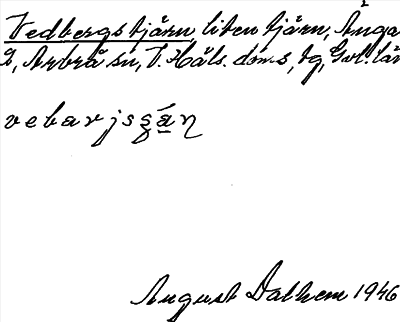 Vedbergstjärn, liten tjärn, Änga
2, Arbrå sn, V. Häls. dms, tg, Gvl. län
vebarjsʂän
August Dalhem 1946